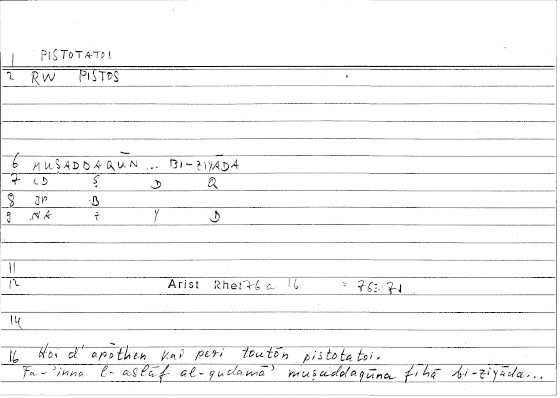 1 PISTOTATOI
2 RW PISTOS
6 MUṢADDAQŪN ... BI-ZIYĀDA
7 LD Ṣ D Q
8 JP B
9 NA Z Y D
11
12 Arist Rhet 76 a 16 = 76:21
14
16 Hoi d' apōthen kai peri toutōn pistotatoi.
Fa-'inna l-aslāf al-qudamā' muṣaddaqūna fīhā bi-ziyāda...